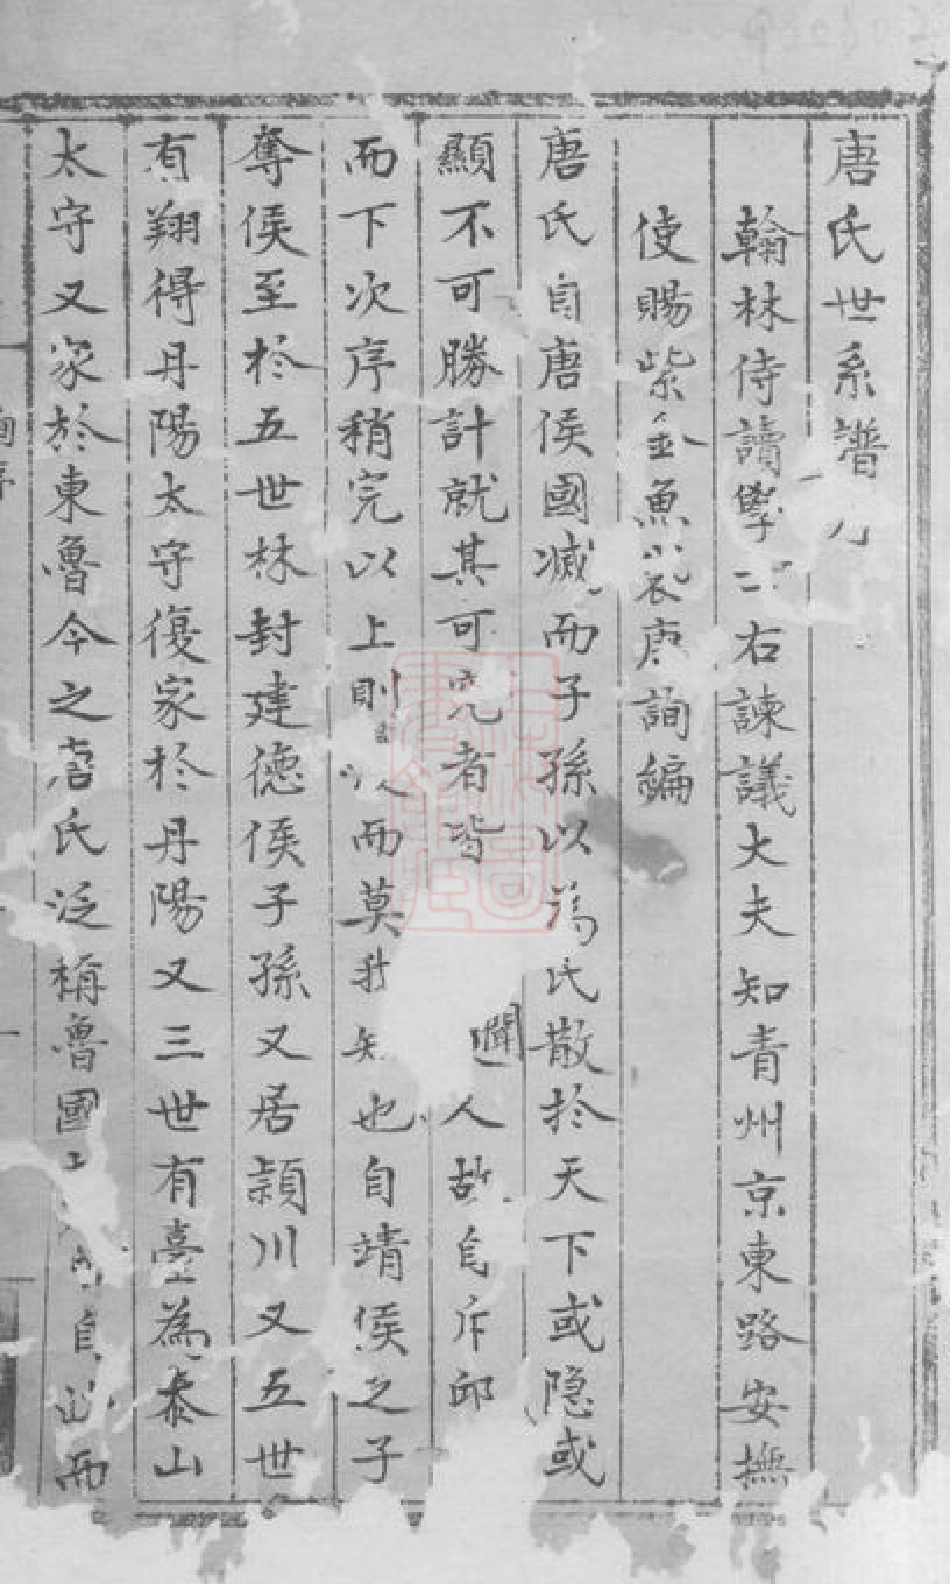 唐氏世系譜
翰林侍讀學右諫議大夫知青州京東路安撫
使賜紫金魚袋唐詢編
唐氏自唐侯國滅而子孫以為氏散於天下或隐或
顯不可勝計就其可究者皆聞人故自斥邱
而下次序稍完以上則以而莫我知也自靖侯之子
奪侯至於五世林封建德侯子孫又居潁川又五世
有翔得丹陽太守復家於丹陽又三世有臺為泰山
太守又家於東魯今之唐氏泛稱魯國自此而